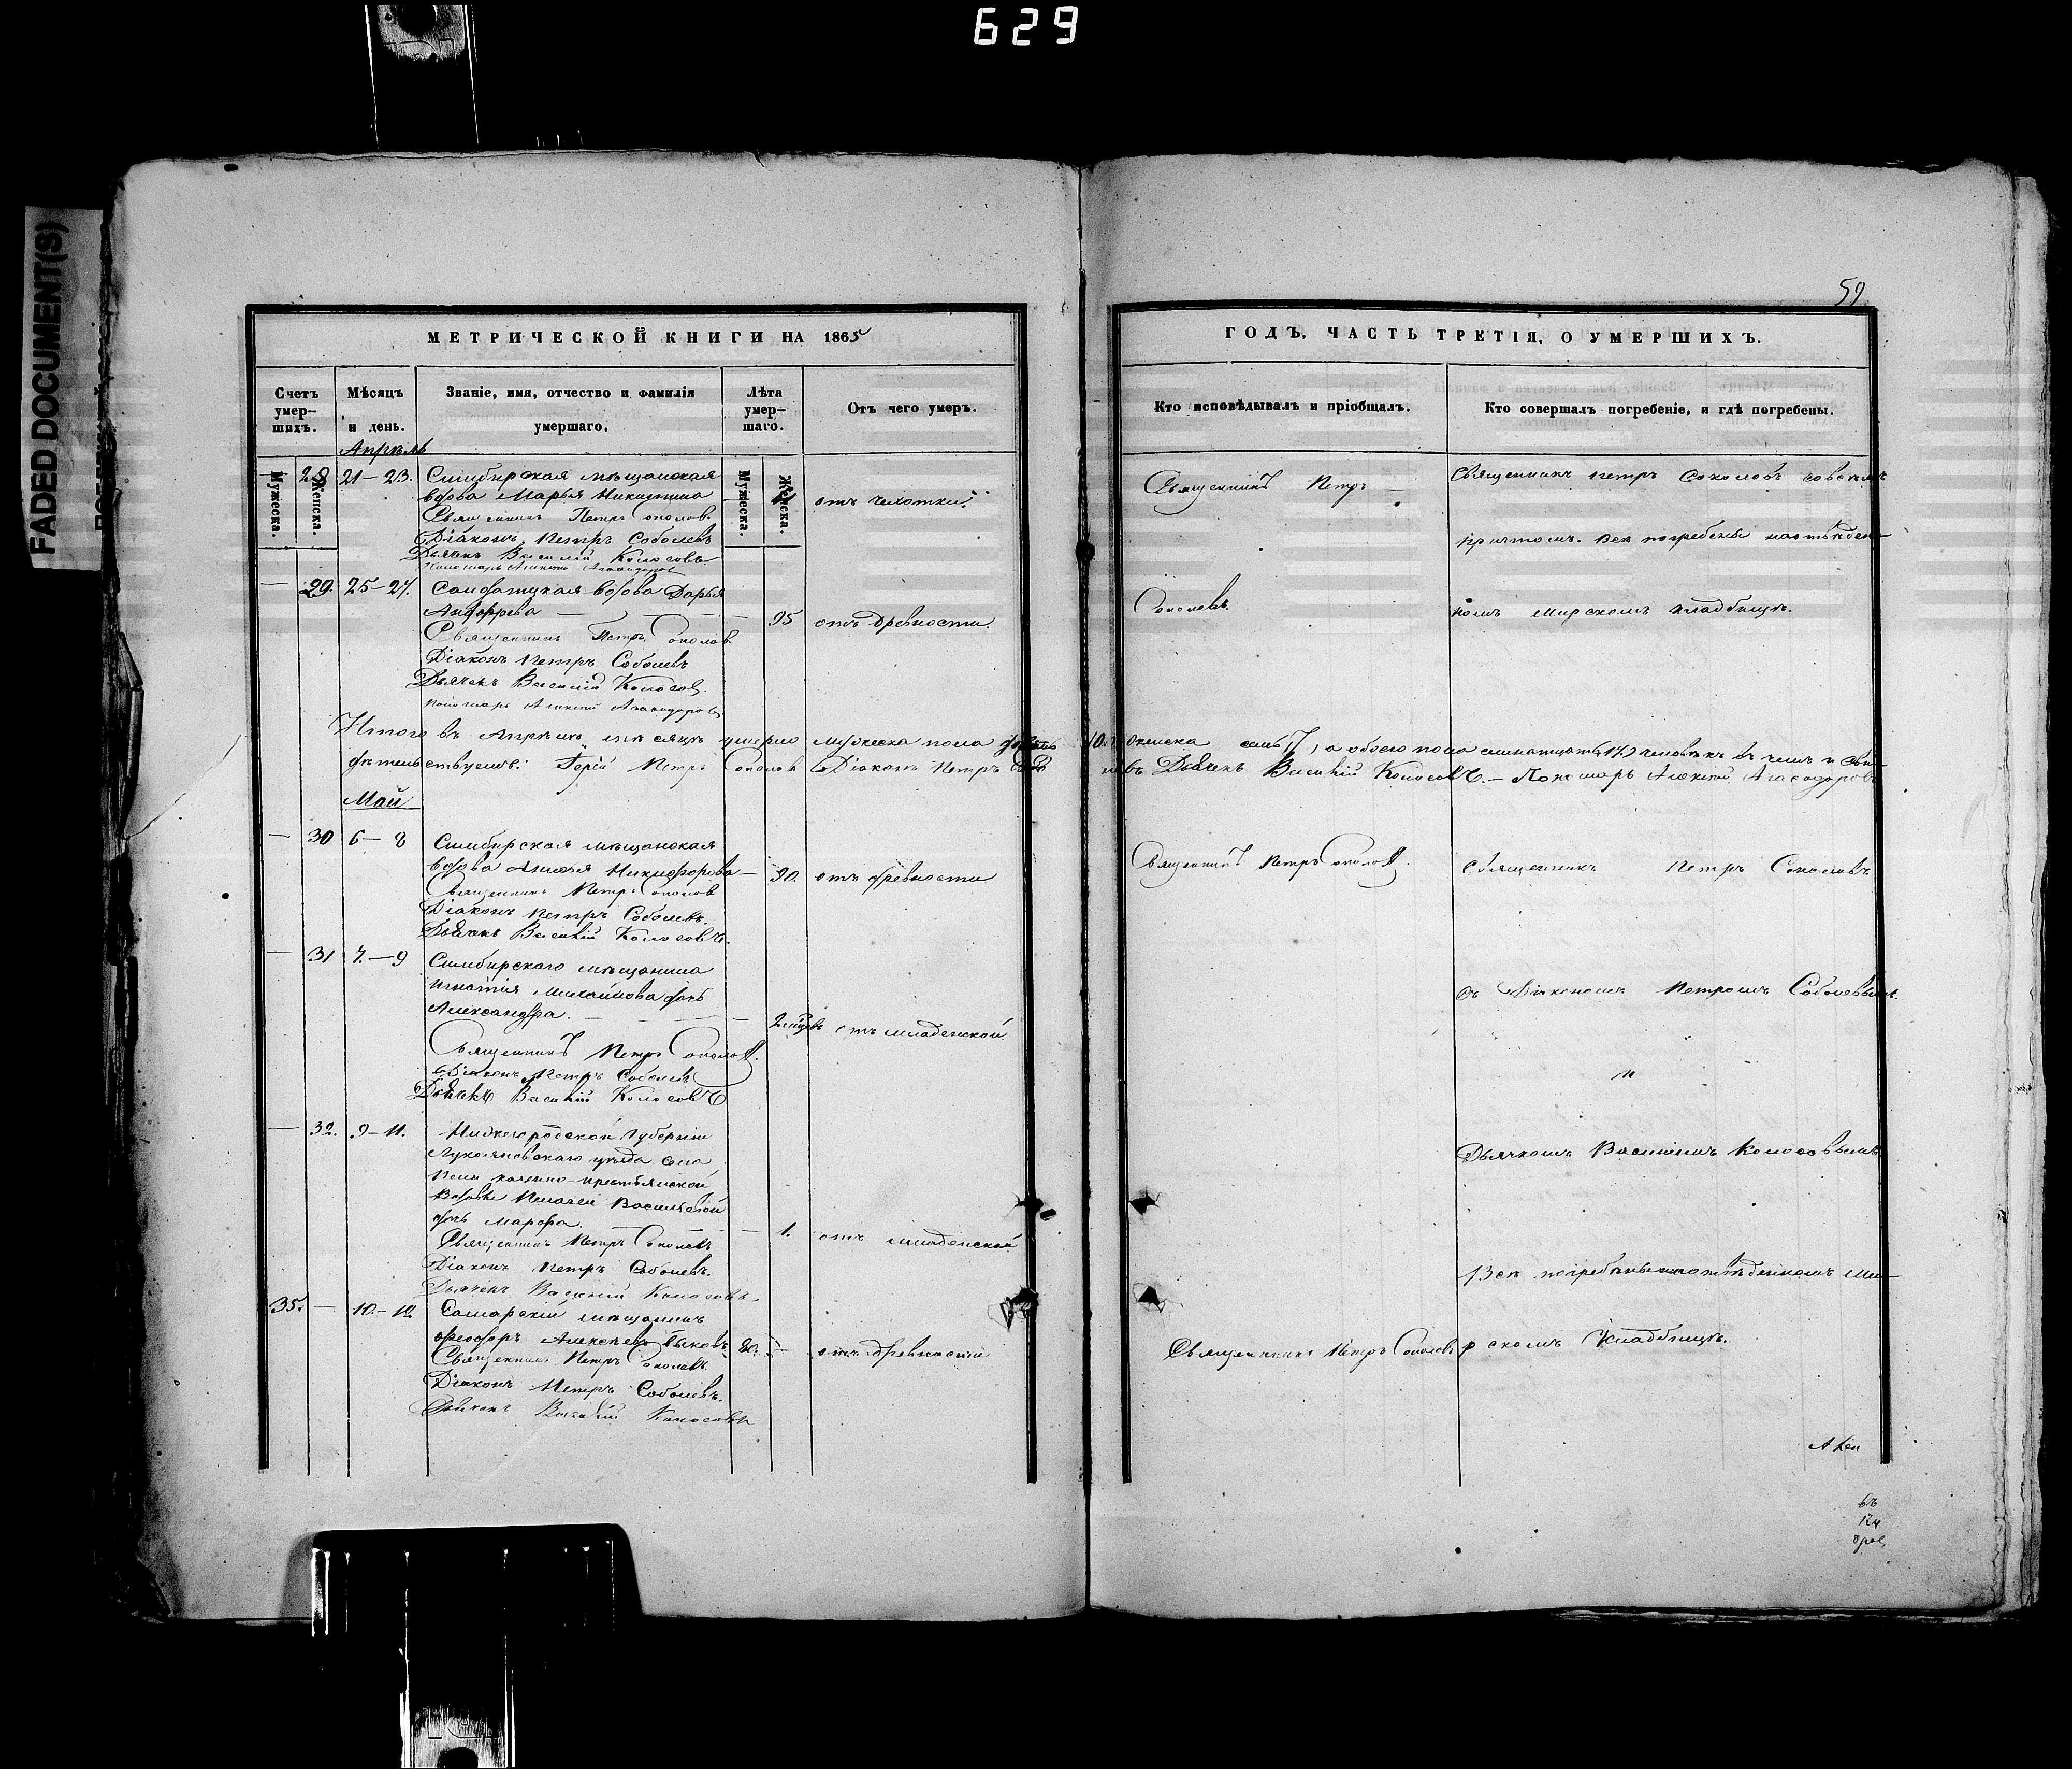 629
FADED DOCUMENT(S)
МЕТРИЧЕСКОЙ КНИГИ НА 1865
Счетъ умер-
шихъ.
Мѣсяцъ
и день.
Званіе, имя, отчество и фамилія
умершаго.
Лѣта
умер-
шаго.
Отъ чего умеръ.
Мужеска.
Женска.
Мужеска.
Женска.
Апрѣль
28 21-23. Симбирская мѣщанская
вдова Марья Никитина
отъ чахотки.
Священникъ Петръ Соколов.
Діаконъ Петръ Соболевъ
Дьячекъ Василій Колосовъ.
Пономарь Алексѣй
— 29. 25-27. Солдатская вдова Дарья
Андреева — — 95 отъ древности.
Священникъ Петръ Соколов
Діаконъ Петръ Соболевъ
Дьячекъ Василій Колосов.
Пономарь Алексѣй
Итого въ Апрѣлѣ мѣсяцѣ умерло мужеска пола
дѣтельствуемъ: Іерей Петръ Соколов Діаконъ Петръ
Май
— 30 6-8 Симбирская мѣщанская
вдова Никифорова — 90. отъ древности
Священникъ Петръ Соколов
Діаконъ Петръ Соболевъ.
Дьячекъ Василій Колосовъ.
— 31 7.-9 Симбирскаго мѣщанина
Игнатія Михайлова дочь
Александра. — — 2 отъ младенской
Священникъ Петръ Соколов.
Діаконъ Петръ Соболевъ
Дьячекъ Василій Колосовъ
— 32. 9-11. Нижегородской Губерніи
Лукояновскаго уѣзда села
крестьянской
Пелагеи Васильевой
дочь Марфа. — — 1. отъ младенской
Священникъ Петръ Соколовъ
Діаконъ Петръ Соболевъ.
Дьячекъ Василій Колосовъ
35. — 10.-12. Самарскій мѣщанинъ
Феодоръ Алексѣевъ Быковъ 80. — отъ древности
Священникъ Петръ Соколовъ
Діаконъ Петръ Соболевъ.
Дьячекъ Василій Колосовъ
59
ГОДЪ, ЧАСТЬ ТРЕТІЯ, О УМЕРШИХЪ.
Кто исповѣдывалъ и пріобщалъ.
Кто совершалъ погребеніе, и гдѣ погребены.
Священникъ Петръ —
Священникъ Петръ Соколовъ совсѣмъ
причтомъ. Всѣ погребены
Соколовъ.
номъ мирскомъ кладбищѣ.
10. женска семь 7, а обоего пола семнатцать (17) человѣкъ въ чемъ и сви-
Дьячекъ Василій Колосовъ. — Пономарь Алексѣй
Священникъ Петръ Соколов.
Священникъ Петръ Соколовъ
съ Діакономъ Петромъ Соболевымъ.
и
Дьячкомъ Василіемъ Колосовымъ
Всѣ погребены ми-
Священникъ Петръ Соколовъ
рскомъ кладбищѣ.